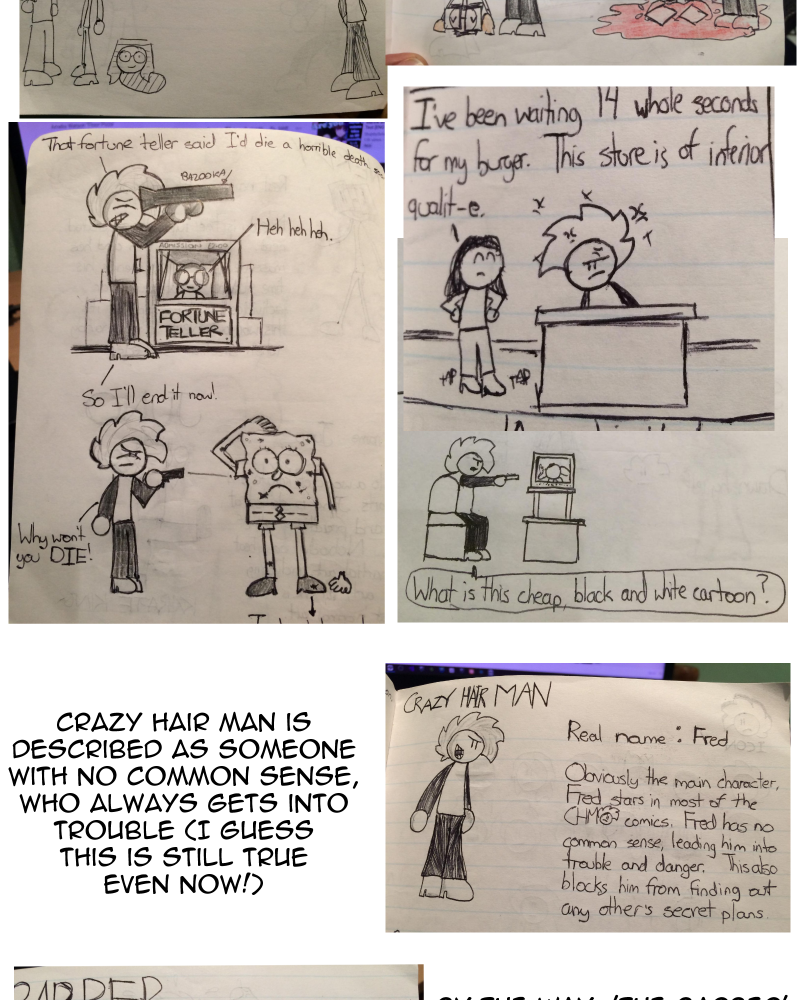 That fortune teller said I'd die a horrible death, so
BAZOOKA!
Heh heh heh.
ADMISSION
FORTUNE
TELLER
So I'll end it now!
Why won't
you DIE!
I've been waiting 14 whole seconds
for my burger. This store is of inferior
qualit-e.
TAP
TAP
What is this cheap, black and white cartoon?
CRAZY HAIR MAN IS
DESCRIBED AS SOMEONE
WITH NO COMMON SENSE,
WHO ALWAYS GETS INTO
TROUBLE (I GUESS
THIS IS STILL TRUE
EVEN NOW!)
CRAZY HAIR MAN
Real name : Fred
Obviously the main character,
Fred stars in most of the
CHM comics. Fred has no
common sense, leading him into
trouble and danger. This also
blocks him from finding out
any other's secret plans.